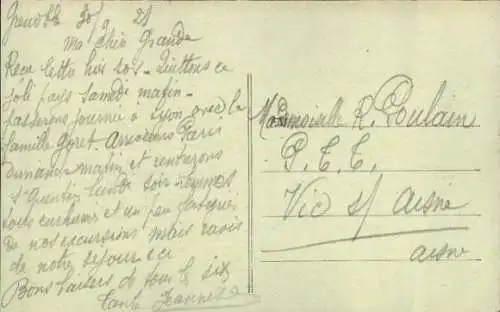 Grenoble 30/9 21
Ma chère Grande
Reçu lettre hier soir - Quittons ce
joli pays Samedi matin -
passerons journée à Lyon avec la
famille Arrivons Paris
dimanche matin et rentrerons
St Quentin lundi soir
tous enrhumés et un peu fatigués
de nos excursions mais ravis
de notre séjour ici
Bons baisers de tous les six
Tante Jeanne
Mademoiselle R. Poulain
P. T. T.
Vic s/ Aisne
Aisne